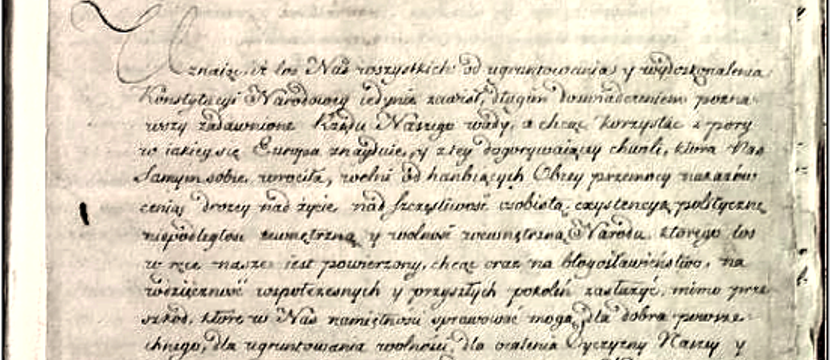 Uznaiąc, iż los Nas wszystkich od ugruntowania y wydoskonalenia
Konstytucyi Narodowey iedynie zawisł, długim doświadczeniem pozna-
wszy zadawnione Rządu Naszego wady, a chcąc korzystać z pory
w iakiey się Europa znayduie, y z tey dogorywaiącey chwili, która Nas
samym sobie wrociła, wolni od hanbiących Obcey przemocy nakazów
ceniąc drożey nad życie, nad szczęśliwość osobistą, exystencyą polityczną
niepodległość zewnętrzną y wolność wewnętrzną Narodu, ktorego los
w ręce nasze iest powierzony, chcąc oraz na błogosławieństwo, na
wdzięczność wspołczesnych y przyszłych pokoleń zasłużyć, mimo prze-
szkod, które w Nas namiętności sprawować mogą, dla dobra powsze-
chnego, dla ugruntowania wolności, dla ocalenia Oyczyzny Naszey y